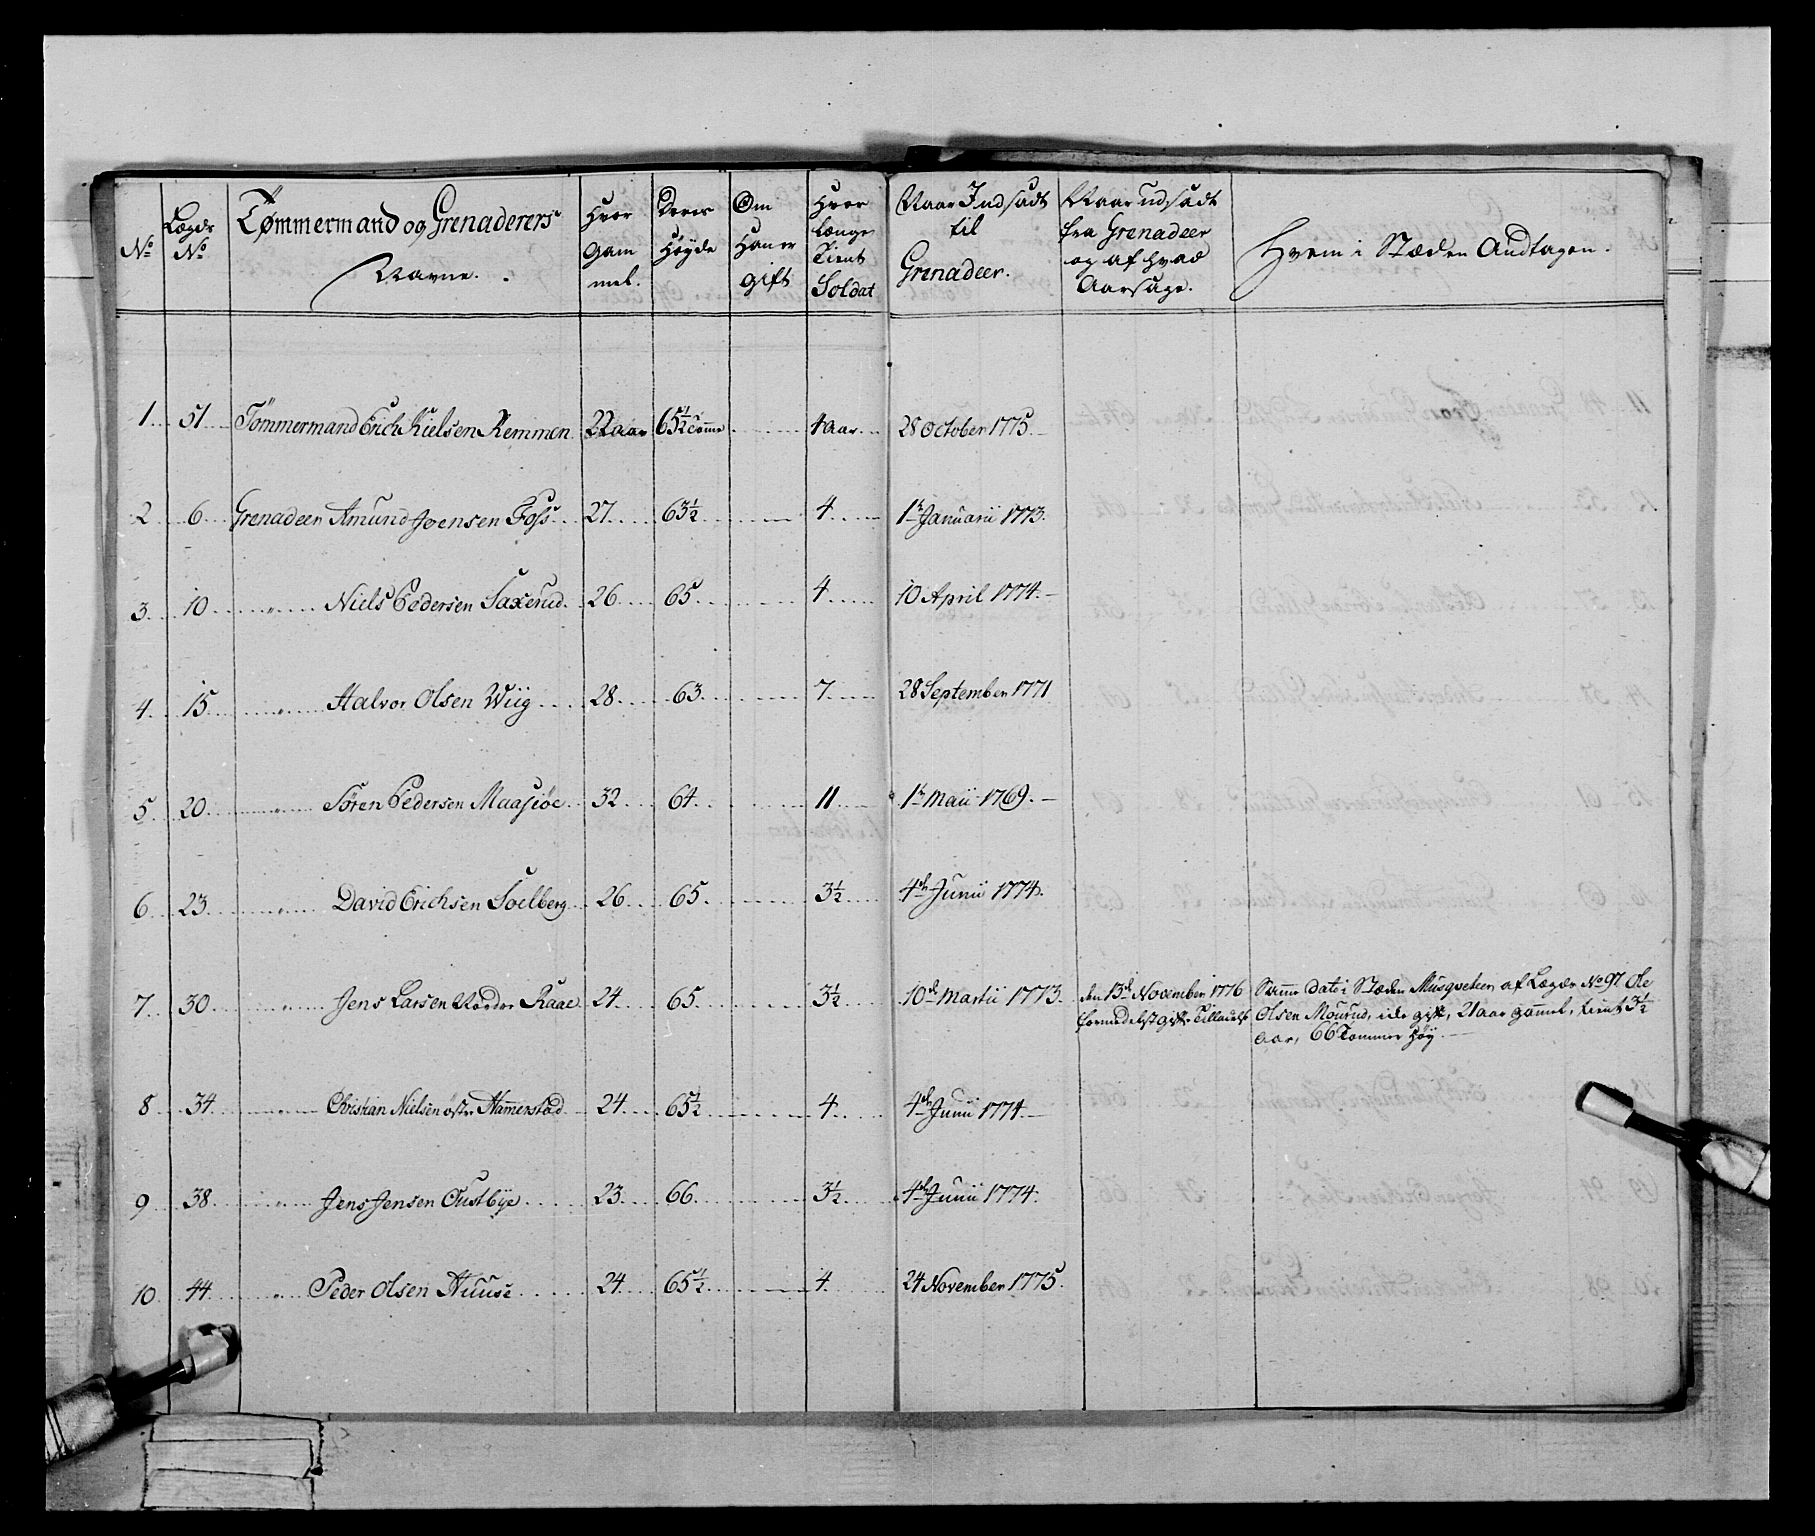 No | Lægds No | Tømmermand og Grenaderers Navne. | Hvor Gammel. | Deres Høyde | Om Han er gift | Hvor længe Tient Soldat | Naar Indsadt til Grenadeer. | Naar udsadt fra Grenadeer og af hvad Aarsage. | Hvem i Stæden Andtagen.
1 51 Tømmermand Erich Nielsen Remmen 22 aar 65½ Tomme 4 aar 28 October 1775
2 6 Grenadeer Amund Joensen Foss 27 63½ 4 1te Januarii 1773.
3 10 " Niels Pedersen Saxerud 26 65 4 10 April 1774.
4 15 " Halvor Olsen Wiig 28 63 7 28 September 1771
5 20 " Søren Pedersen Maasiøe 32 64 11 1te Maii 1769.
6 23 " David Erichsen Soelberg 26 65 3½ 4de Junii 1774.
7 30 " Jens Larsen Nordre Raae 24 65 3½ 10de Martii 1773. den 13de November 1776 Samme dato i Stæden Musqveteer af Lægds No 97 Ole
formedelst gifte Tilladelse Olsen Mourud, icke gift, 21 aar gammel, tient 3½
aar, 66 Tommer høy
8 34 " Christian Nielsen østre Hamerstad 24 65½ 4 4de Junii 1774.
9 38 " Jens Jensen Oustbye 23 66 3½ 4de Junii 1774.
10 44 " Peder Olsen Huuse 24 65½ 4 24 November 1775.